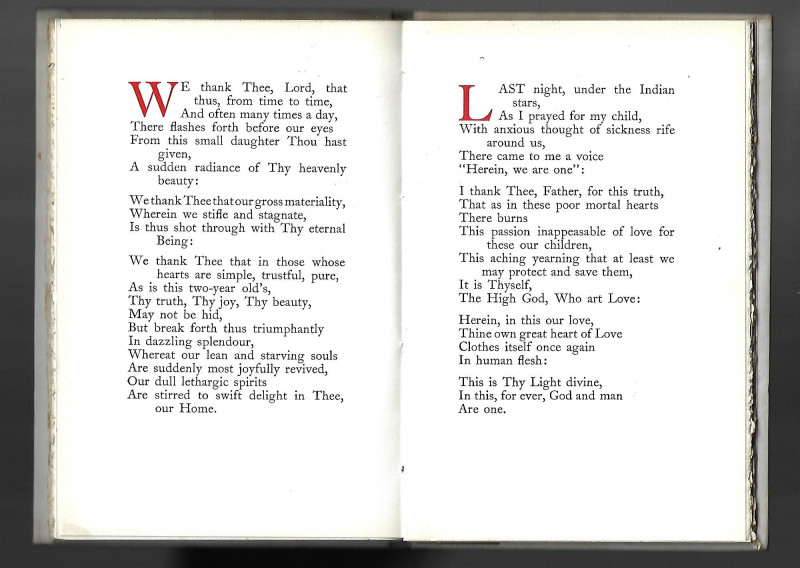 WE thank Thee, Lord, that
thus, from time to time,
And often many times a day,
There flashes forth before our eyes
From this small daughter Thou hast
given,
A sudden radiance of Thy heavenly
beauty:
We thank Thee that our gross materiality,
Wherein we stifle and stagnate,
Is thus shot through with Thy eternal
Being:
We thank Thee that in those whose
hearts are simple, trustful, pure,
As is this two-year old's,
Thy truth, Thy joy, Thy beauty,
May not be hid,
But break forth thus triumphantly
In dazzling splendour,
Whereat our lean and starving souls
Are suddenly most joyfully revived,
Our dull lethargic spirits
Are stirred to swift delight in Thee,
our Home.
LAST night, under the Indian
stars,
As I prayed for my child,
With anxious thought of sickness rife
around us,
There came to me a voice
"Herein, we are one":
I thank Thee, Father, for this truth,
That as in these poor mortal hearts
There burns
This passion inappeasable of love for
these our children,
This aching yearning that at least we
may protect and save them,
It is Thyself,
The High God, Who art Love:
Herein, in this our love,
Thine own great heart of Love
Clothes itself once again
In human flesh:
This is Thy Light divine,
In this, for ever, God and man
Are one.